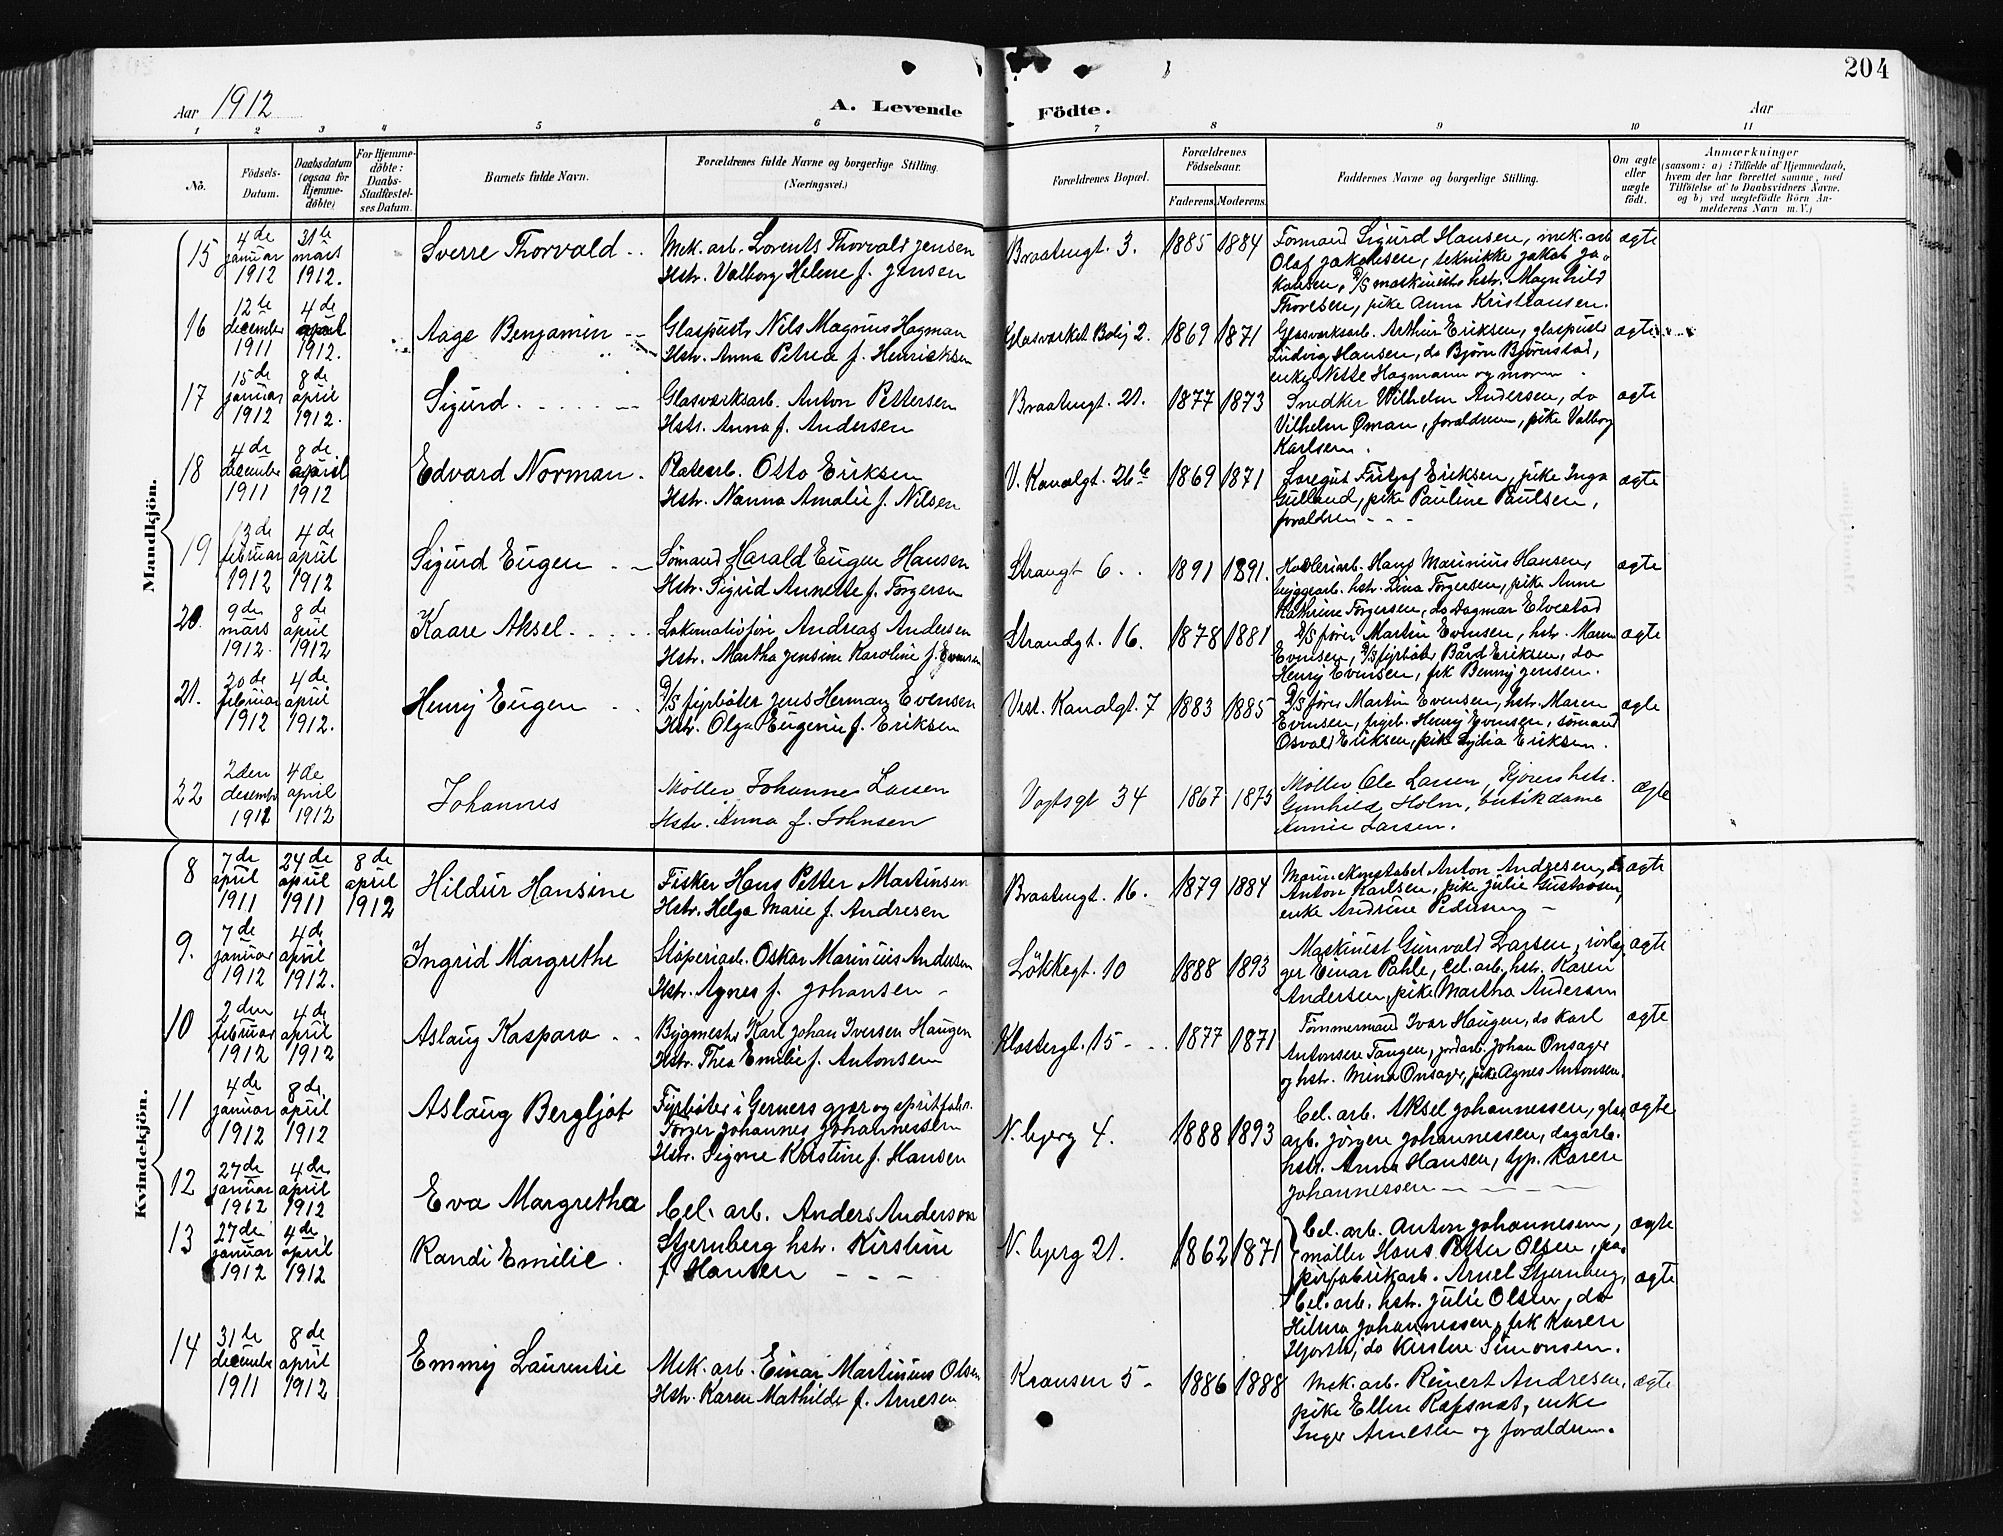 204
Aar 1912
A. Levende
Födte.
Aar
1 2 3 4 5 6 7 8 9 10 11
No.
Födsels-Datum.
Daabsdatum (ogsaa for Hjemmedöbte)
For Hjemmedöbte: Daabs-Stadfæstelses Datum.
Barnets fulde Navn.
Forældrenes fulde Navne og borgerlige Stilling. (Næringsvei.)
Forældrenes Bopæl.
Forældrenes Födselsaar.
Faderens. Moderens.
Faddernes Navne og borgerlige Stilling.
Om ægte eller uægte födt.
Anmærkninger
(saasom: a) i Tilfælde af Hjemmedaab,
hvem der har forrettet samme, med
Tilföielse af to Daabsvidners Navne,
og b) ved uægtefödte Börn Anmelderens Navn m. V.)
Mandkjön.
15 4de januar 1912 31te mars 1912. Sverre Thorvald
Mek. arb. Lorents Thorvald Jensen
Hstr. Valborg Helene f. Jensen
Braatengt. 3. 1885 1884
Formand Sigurd Hansen, mek. arb
Olaf Jakobsen, teknikke Jakob Ja-
kobsen, D/S maskinists hstr. Magnhild
Thoresen, pike Anna Kristiansen.
ægte
16 12te december 1911 4de april 1912. Aage Benjamin
Glaspustr Nils Magnus Hagman
Hstr. Anna Petrea f. Henriksen
Glasverket Bolig 2. 1869 1871
Glasverksarb. Arthur Eriksen, glaspuster
Ludvig Hansen, do Bjørn Bjørnstad,
enke Nette Hagmann og moren
ægte
17 15de januar 1912 8de april 1912. Sigurd
Glasværksarb. Anton Pettersen
Hstr. Anna f. Andersen
Braatengt. 21. 1877 1873
Snedker Wilhelm Andersen, do
Vilhelm Øman, forældrene, pike Valborg
Karlsen.
ægte
18 4de december 1911 8de april 1912 Edvard Norman.
Platearb. Otto Eriksen
Hstr. Nanna Amalie f. Nilsen
V. Kanalgt. 26b 1869 1871
Fritjof Eriksen, pike Inga
Gulland, pike Pauline Paulsen,
forældren
ægte
19 13de februar 1912 4de april 1912 Sigurd Eugen
Sømand Harald Eugen Hansen
Hstr. Sigrid Annette f. Torgersen
Strangt 6. 1891 1891.
Hans Marinius Hansen,
bryggearb. hstr. Lina Torgersen, pike Anne
Kathrine Torgersen, do Dagmar Elvestad
ægte
20. 9de mars 1912. 8de april 1912 Kaare Aksel.
Lokomotivfør. Andreas Andersen
Hstr. Martha Jensine Karoline f. Evensen
Strandgt. 16. 1878 1881
D/S fører Martin Evensen, hstr. Maren
Evensen, D/S fyrbøter Bård Eriksen, do
Henry Evensen, frk Benny Jensen.
ægte
21. 20de februar 1912 4de april 1912. Henry Eugen
D/S fyrbøter Jens Herman Evensen
Hstr. Olga Eugenie f. Eriksen
Vest. Kanalgt. 7 1883 1885
D/S fører Martin Evensen, hstr. Maren
Evensen, fyrb. Henry Evensen, sømand
Osvald Eriksen, pike Lydia Eriksen.
ægte
22 2den desember 1911 4de april 1912 Johannes
Møller Johannes Larsen
Hstr. Anna f. Johnsen
Vogtsgt 34 1867 1875
Møller Ole Larsen, hstr.
Gunhild Holm, butikdame
Annie Larsen.
ægte
Kvindekjön.
8 7de april 1911 24de april 1911 8de april 1912 Hildur Hansine
Fisker Hans Petter Martinsen
Hstr. Helga Marie f. Andresen
Braatengt. 16. 1879 1884
Anton Andresen, do
Anton Karlsen, pike Julie Gustavsen,
enke Andrine Pedersen
ægte
9. 7de januar 1912 4de april 1912. Ingrid Margrethe
Støperiarb. Oskar Marinius Andersen
Hstr. Agnes f. Johansen
Løkkegt. 10 1888 1893
Maskinist Gunvald Larsen,
ger Einar Pahle, Cel. arb. hstr. Karen
Andersen, pike Martha Andersen
ægte
10 2den februar 1912 4de april 1912 Aslaug Kaspara
Bygmester Karl Johan Iversen Haugen
Hstr. Thea Emilie f. Antonsen
Klostergt. 15 1877 1871
Tømmermand Ivar Haugen, do Karl
Antonsen Tangen, jordarb. Johan Onsager
og hstr. Mina Onsager, pike Agnes Antonsen.
ægte
11 4de januar 1912 8de april 1912 Aslaug Bergljot
Fyrbøter i Gerners gjær og spritfabr.
Torger Johannes Johannessen
Hstr. Signe Kristine f. Hansen
N. bjerg 4. 1888 1893
Cel. arb. Aksel Johannessen, glas
arb. Jørgen Johannessen, dagarb.
hstr. Anna Hansen, tjp. Karen
Johannessen
ægte
12 27de januar 1912 4de april 1912 Eva Margretha
13 27de januar 1912 4de april 1912 Randi Emilie.
Cel. arb. Anders Anderson
Stjernberg hstr. Kirstine
f. Hansen
N. bjerg 21. 1862 1871
Cel. arb. Anton Johannesen,
møller Hans Petter Olsen, pa-
pirfabrikarb. Arnel Stjernberg,
Cel. arb. hstr. Julie Olsen, do
Hilma Johannessen, frk Karen
Hjorth, do Kirstine Simonsen.
ægte
ægte
14 31te december 1911 8de april 1912 Emmy Laurentie
Mek. arb. Einar Martinius Olsen
Hstr. Karen Mathilde f. Arnesen
Kransen 5 1886 1888
Mek. arb. Reinert Andresen,
pike Ellen Rafsnæs, enke
Inger Arnesen og forældren.
ægte